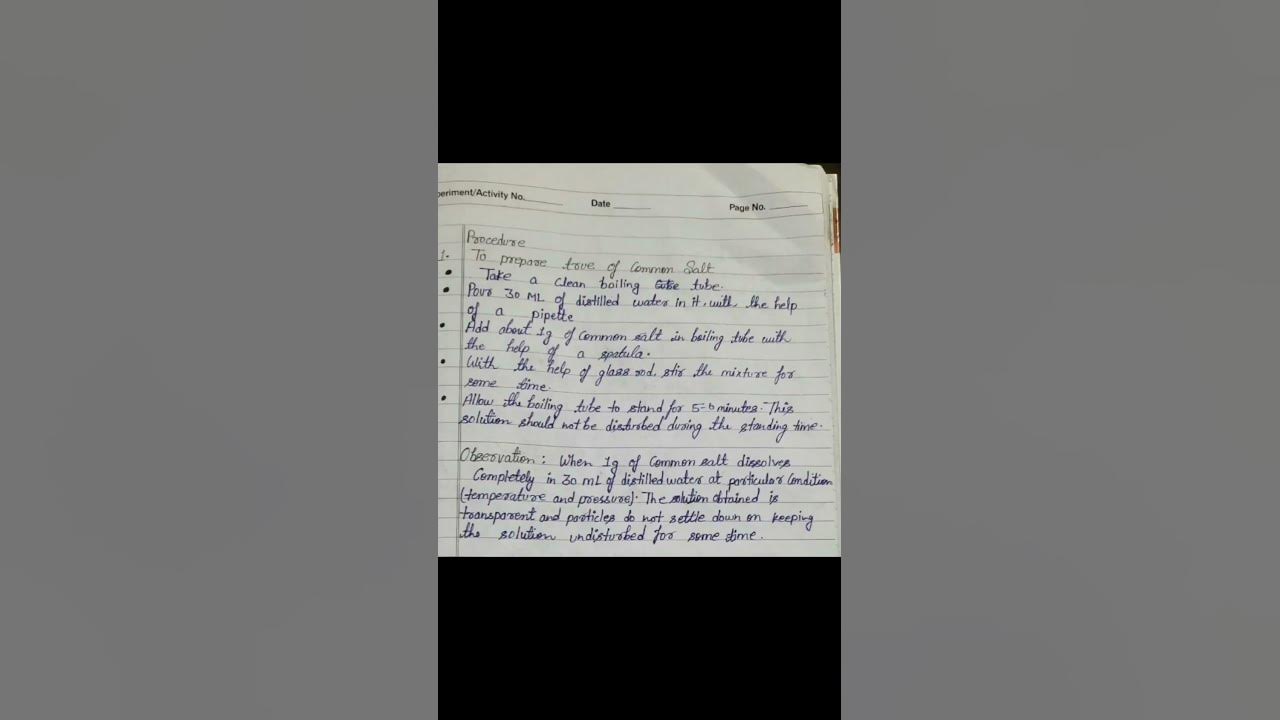 periment/Activity No. Date Page No.
Procedure
1. To prepare true of Common Salt
• Take a clean boiling tube.
• Pour 30 ML of distilled water in it, with the help
of a pipette
• Add about 1g of Common salt in boiling tube with
the help of a spatula.
• With the help of glass rod, stir the mixture for
some time.
• Allow the boiling tube to stand for 5-6 minutes. This
solution should not be distrbed during the standing time.
Observation: When 1g of Common salt dissolves
Completely in 30 mL of distilled water at particular Condition
(temperature and pressure). The solution obtained is
transparent and particles do not settle down on keeping
the solution undisturbed for some time.